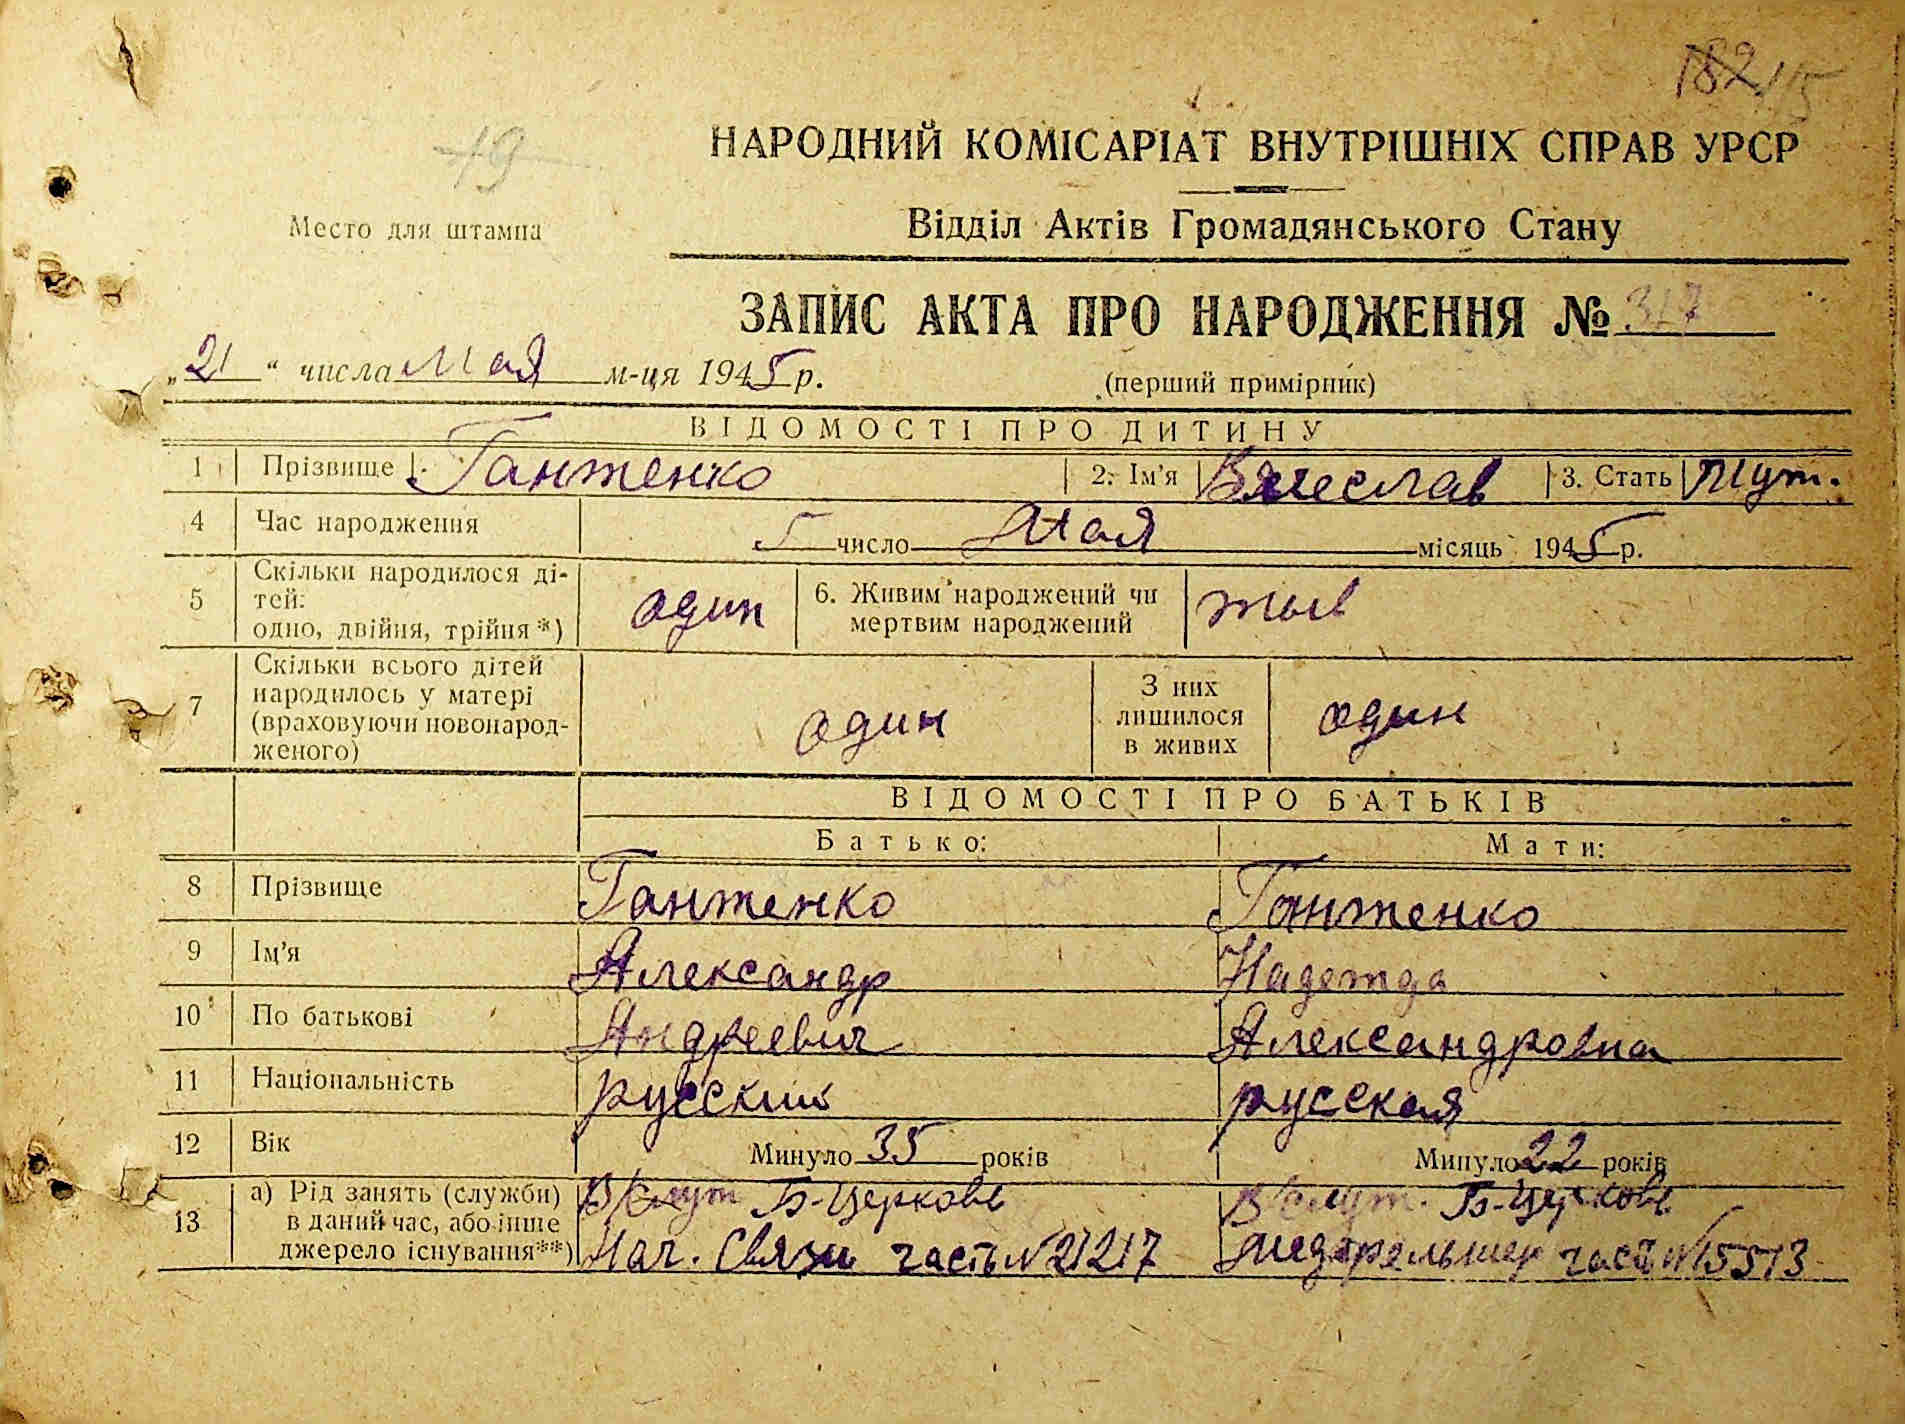 182 115
19
НАРОДНИЙ КОМІСАРІАТ ВНУТРІШНІХ СПРАВ УРСР
Место для штампа
Відділ Актів Громадянського Стану
ЗАПИС АКТА ПРО НАРОДЖЕННЯ № 317
„21“ числа Мая м-ця 1945 р.
(перший примірник)
ВІДОМОСТІ ПРО ДИТИНУ
1 Прізвище Ганженко 2. Ім’я Вячеслав 3. Стать Муж.
4 Час народження 5 число Мая місяць 1945 р.
5 Скільки народилося ді-
тей:
одно, двійня, трійня*) один 6. Живим народжений чи
мертвим народжений жив
7 Скільки всього дітей
народилось у матері
(враховуючи новонарод-
женого) один З них
лишилося
в живих один
ВІДОМОСТІ ПРО БАТЬКІВ
Батько: Мати:
8 Прізвище Ганженко Ганженко
9 Ім’я Александр Надежда
10 По батькові Андреевич Александровна
11 Національність русский русская
12 Вік Минуло 35 років Минуло 22 років
13 а) Рід занять (служби) В/служ Б-Церковь В/служ. Б-Церковь
в даний час, або інше
джерело існування**) Нач. Связи часть N 21217 часть N 15513